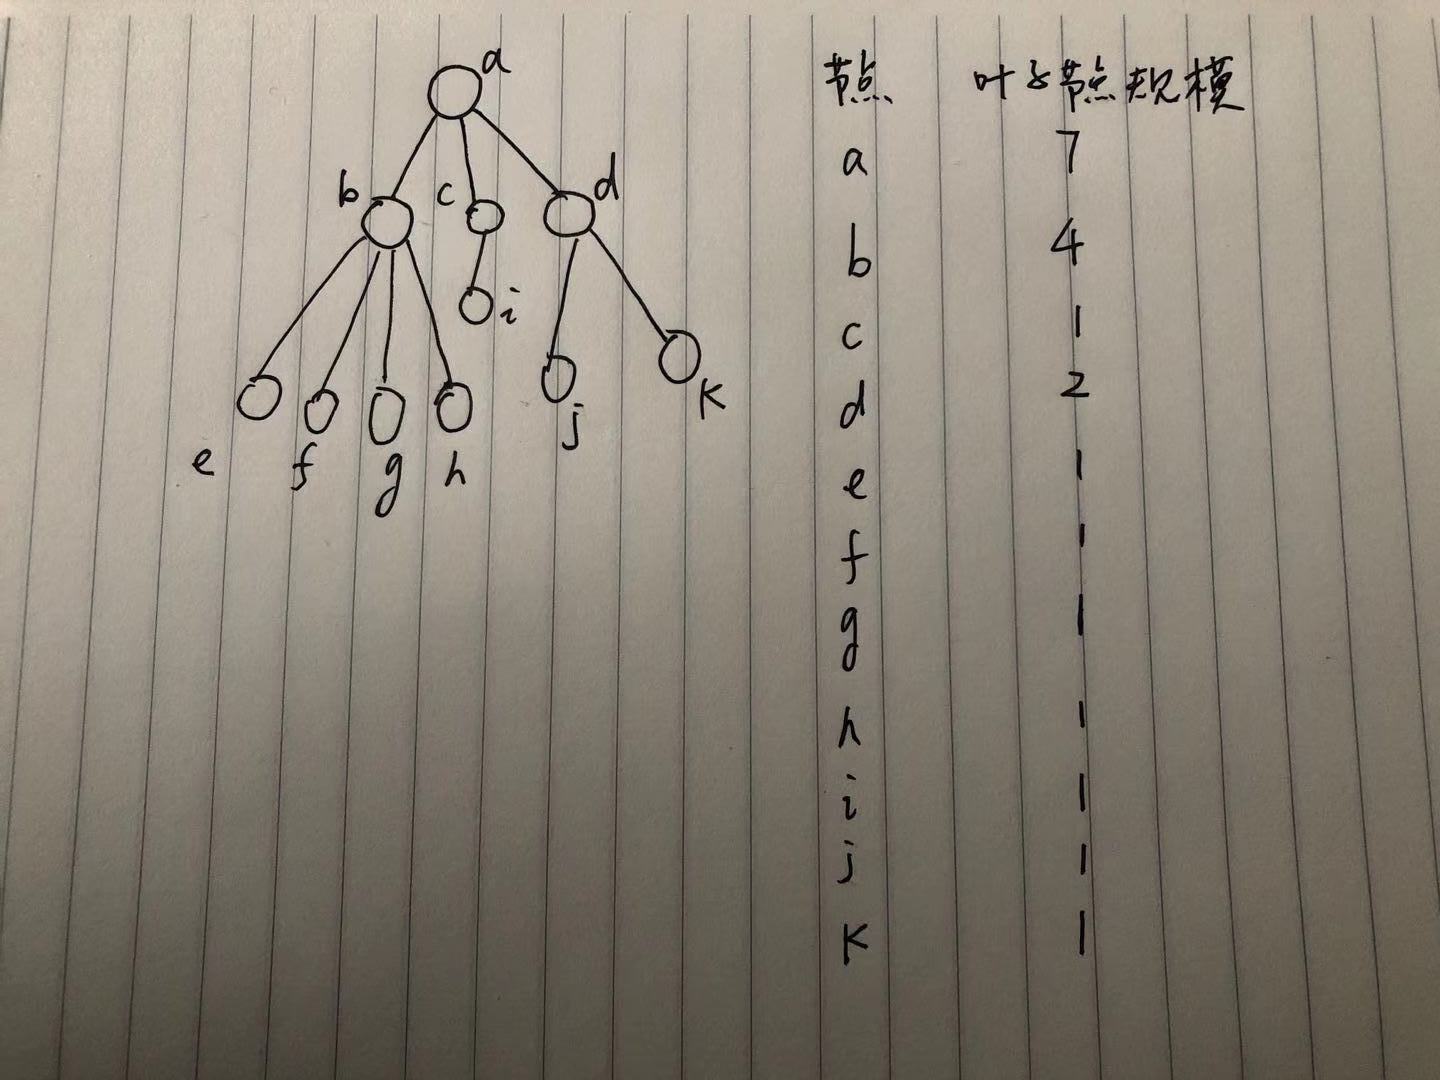 a
b c d
i
j k
e f g h
节点 叶子节点规模
a 7
b 4
c 1
d 2
e 1
f 1
g 1
h 1
i 1
j 1
k 1